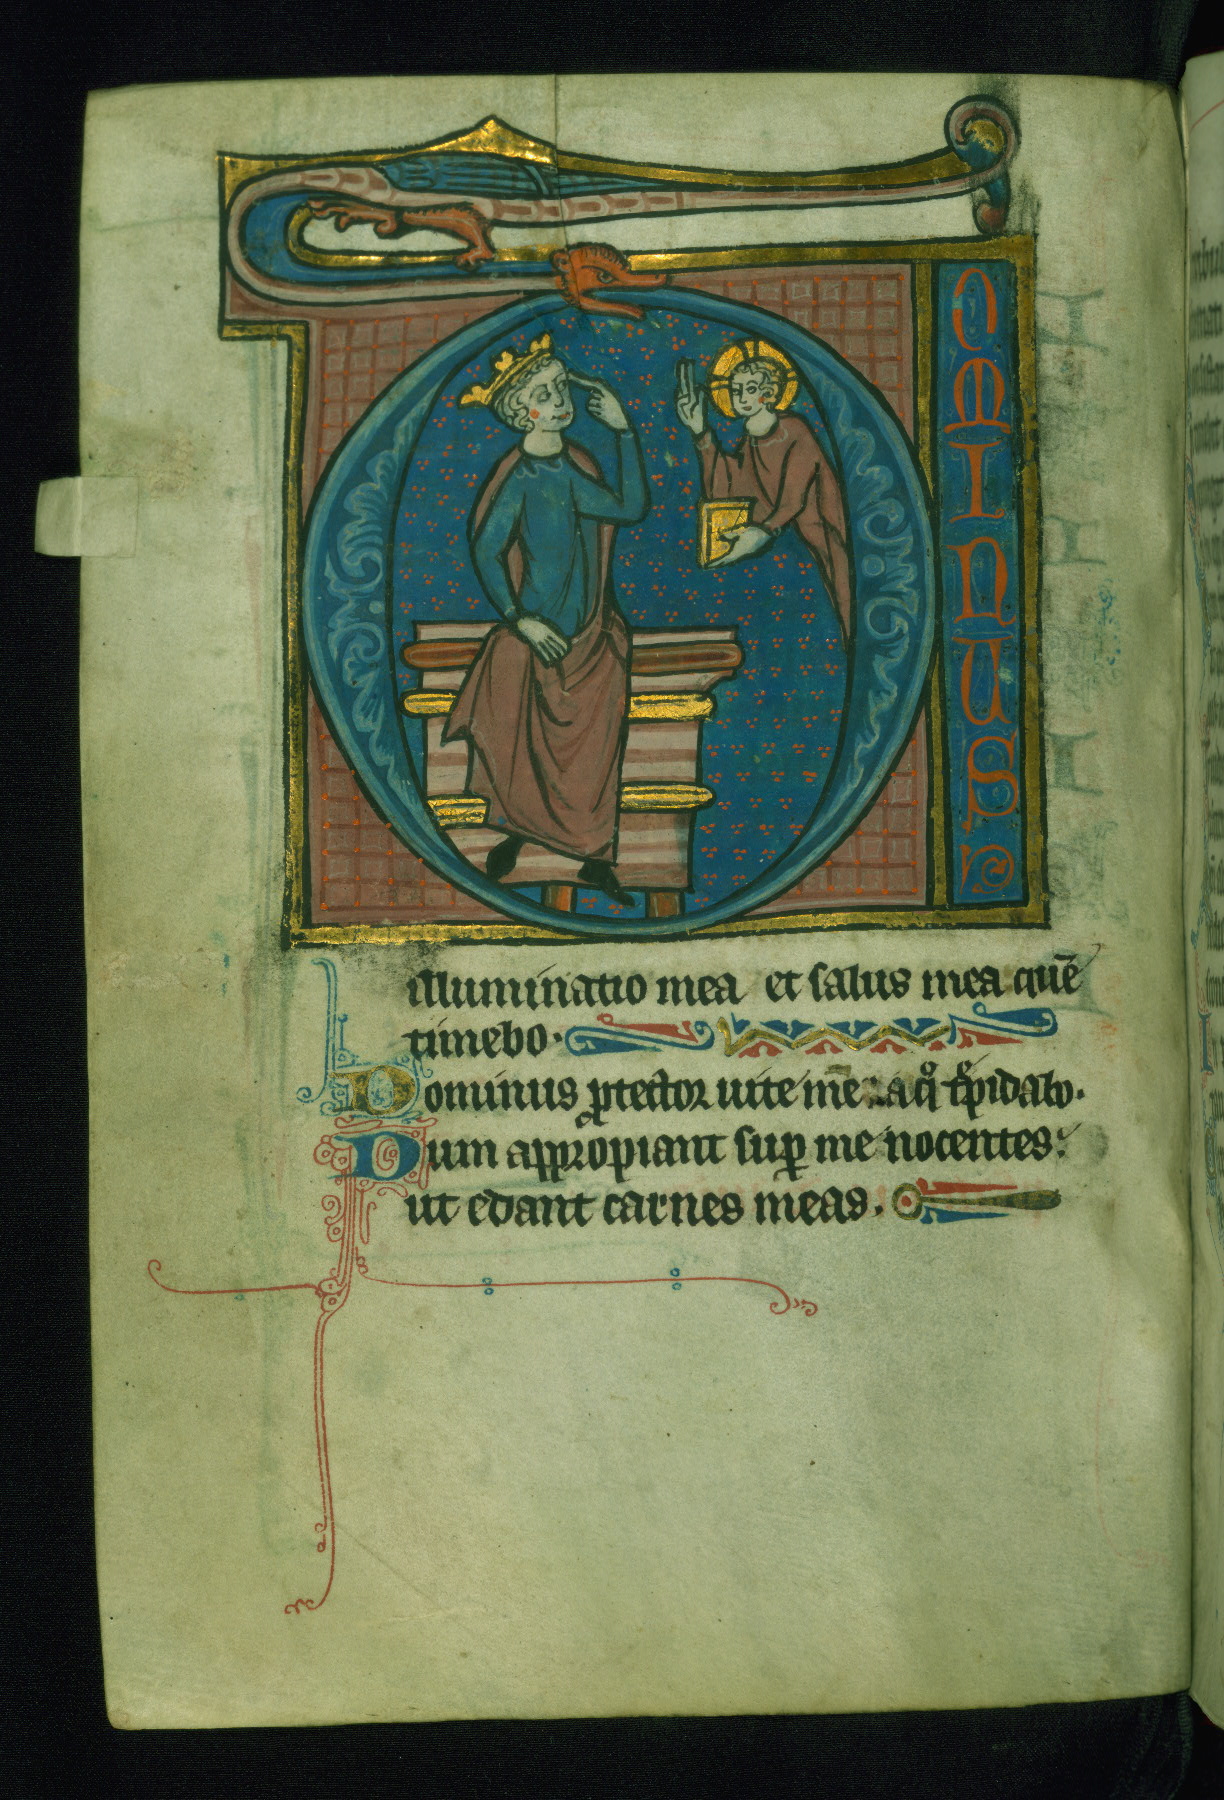 DOMINUS
illuminatio mea et salus mea quē
timebo.
Dominus ꝑtector uite mē a qͦ tͤpidabo.
Dum appropiant suꝑ me nocentes:
ut edant carnes meas.